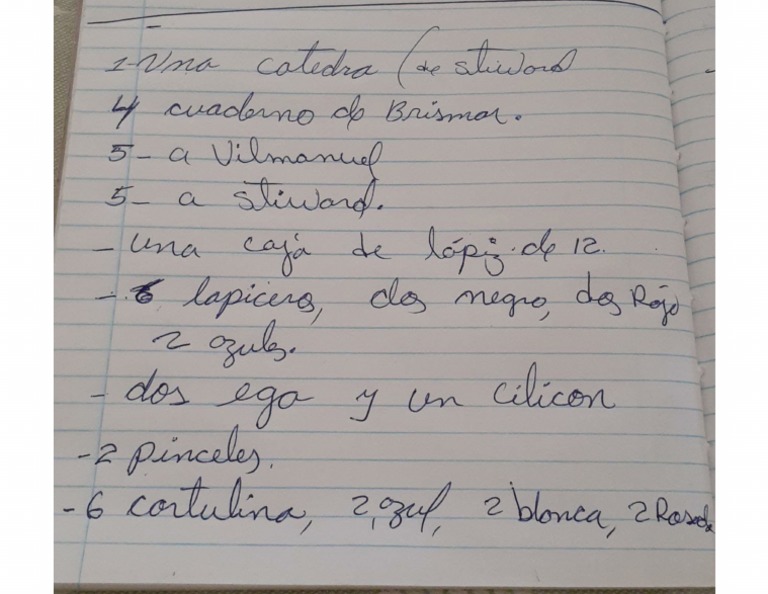 1-Una catedra (de stiword
4 cuaderno de Brismar.
5- a Vilmanuel
5- a stiword.
- una caja de lápiz de 12.
- 6 lapiceros, dos negro, dos Rojo
2 azules.
- dos ega y un cilicon
- 2 pinceles.
- 6 cartulina, 2 azul, 2 blanca, 2 Rosada